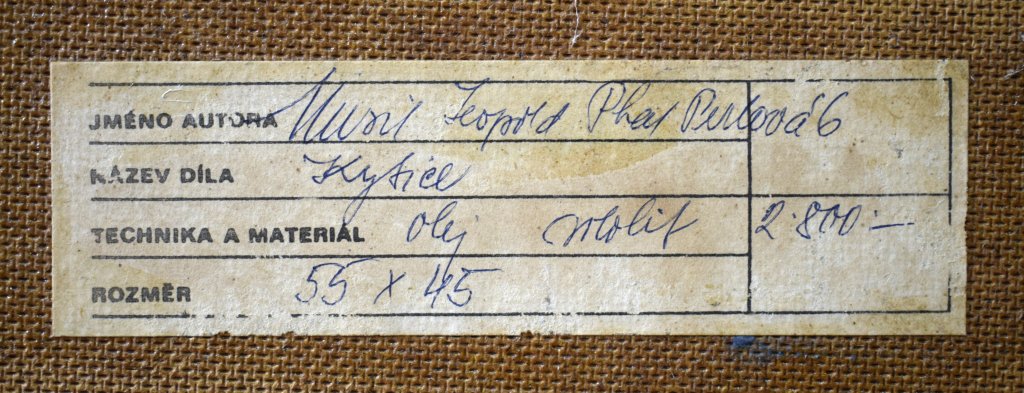 JMÉNO AUTORA Musil Leopold Pha1 Perlová 6
NÁZEV DÍLA Kytice
TECHNIKA A MATERIÁL olej sololit 2.800:-
ROZMĚR 55 x 45